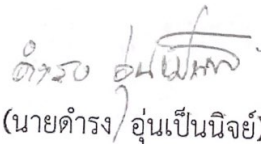 ดำรง อุ่นเป็นนิจย์
(นายดำรง อุ่นเป็นนิจย์)